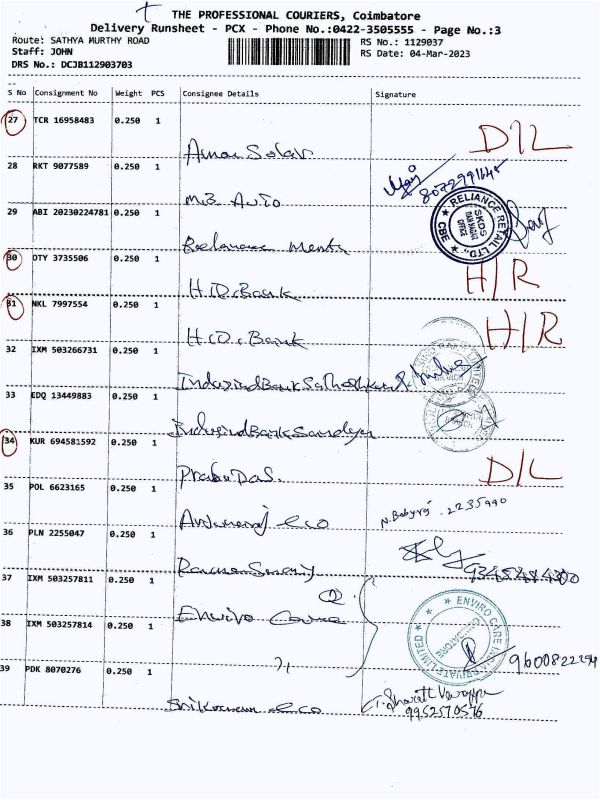 THE PROFESSIONAL COURIERS, Coimbatore
Delivery Runsheet - PCX - Phone No.:0422-3505555 - Page No.:3
Route: SATHYA MURTHY ROAD RS No.: 1129037
Staff: JOHN RS Date: 04-Mar-2023
DRS No.: DCJB112903703
S No Consignment No Weight PCS Consignee Details Signature
27 TCR 16958483 0.250 1 D/L
Aman Solar
28 RKT 9077589 0.250 1
M.B. Auto 8072991645
29 ABI 20230224781 0.250 1 RELIANCE RETAIL LTD., CBE
30 OTY 3735506 0.250 1 H/R
H.D. Bank
31 NKL 7997554 0.250 1 H/R
H.D. Bank
32 IXM 503266731 0.250 1
IndusindBank
33 EDQ 13449883 0.250 1
IndusindBank
34 KUR 694581592 0.250 1 D/L
Prabu Das.
35 POL 6623165 0.250 1
eco N. Babyraj . 2235990
36 PLN 2255047 0.250 1
37 IXM 503257811 0.250 1
Enviro Care
38 IXM 503257814 0.250 1 ENVIRO CARE INDIA PRIVATE LIMITED COIMBATORE
39 PDK 8070276 0.250 1
eco 9952570576